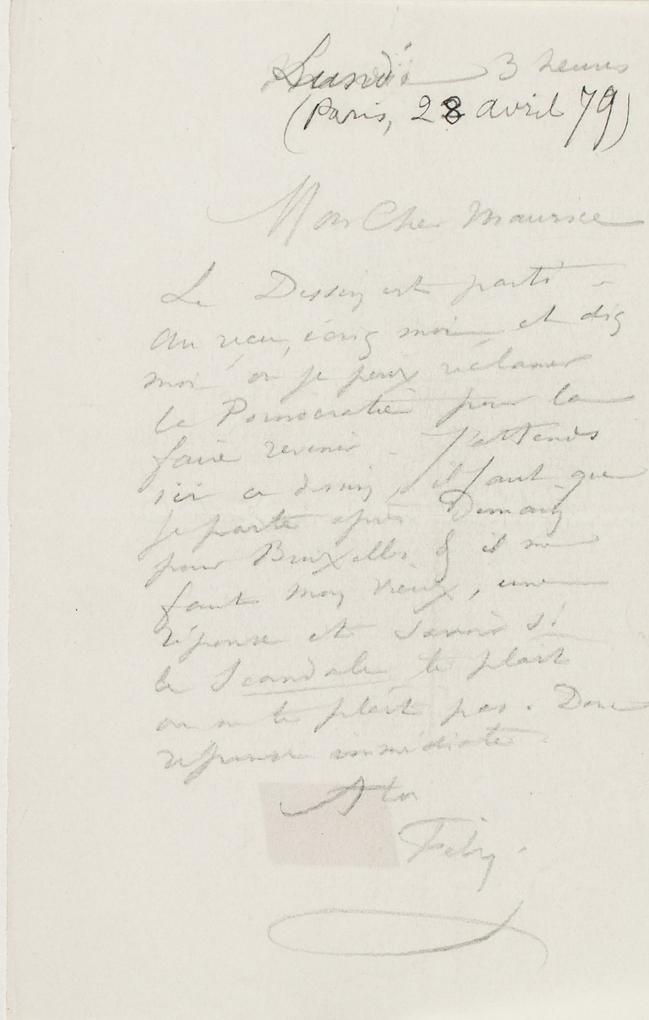 Lundi 3 heures
(Paris, 28 avril 79)
Mon Cher Maurice
Le Dessin est parti -
Au reçu, écris moi et dis
moi où je peux réclamer
la Pornocratie pour la
faire revenir - J'attends
ici ce dessin, il faut que
je parte après Demain
pour Bruxelles & il me
faut mon vieux, une
réponse et savoir si
le Scandale te plait
ou ne te plait pas. Donc
réponse immédiate
A toi
Fély.